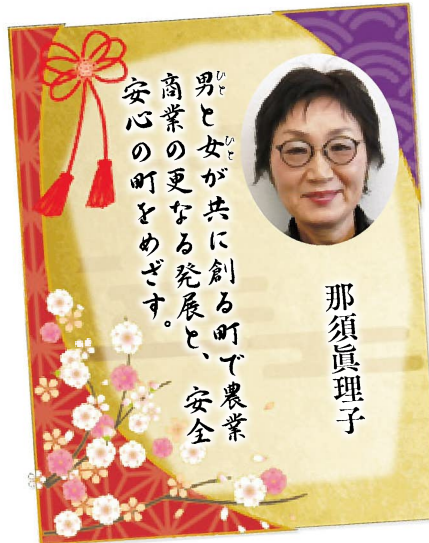 男と女が共に創る町で農業
商業の更なる発展と、安全
安心の町をめざす。
ひと
ひと
那須眞理子